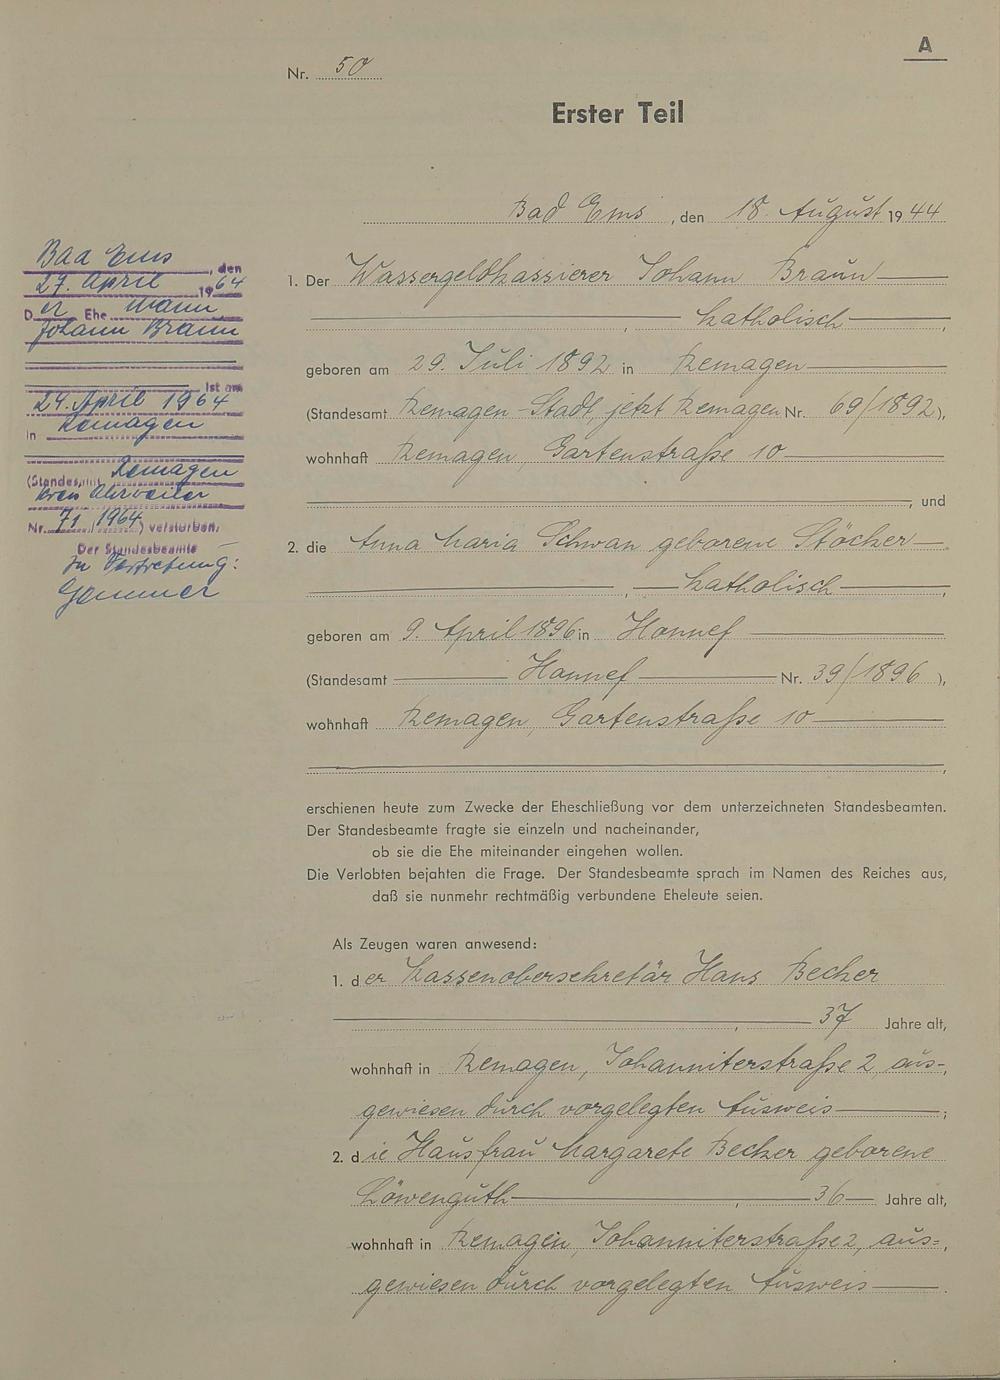 A
Nr. 50
Erster Teil
Bad Ems, den 18. August 1944
Bad Ems, den
27. April 1964
Der Ehemann
Johann Braun
ist am
24. April 1964
in Remagen
(Standesamt Remagen
Kreis Ahrweiler
Nr. 71/1964) verstorben.
Der Standesbeamte
In Vertretung:
1. Der Wassergeldkassierer Johann Braun
, katholisch,
geboren am 29. Juli 1892 in Remagen
(Standesamt Remagen-Stadt, jetzt Remagen Nr. 69/1892),
wohnhaft Remagen, Gartenstraße 10
, und
2. die Anna Maria Schwan geborene Stöcker
, katholisch,
geboren am 9. April 1896 in Honnef
(Standesamt Honnef Nr. 39/1896),
wohnhaft Remagen, Gartenstraße 10
,
erschienen heute zum Zwecke der Eheschließung vor dem unterzeichneten Standesbeamten.
Der Standesbeamte fragte sie einzeln und nacheinander,
ob sie die Ehe miteinander eingehen wollen.
Die Verlobten bejahten die Frage. Der Standesbeamte sprach im Namen des Reiches aus,
daß sie nunmehr rechtmäßig verbundene Eheleute seien.
Als Zeugen waren anwesend:
1. der Kassenobersekretär Hans Becker
, 37 Jahre alt,
wohnhaft in Remagen, Johanniterstraße 2, aus-
gewiesen durch vorgelegten Ausweis;
2. die Hausfrau Margarete Becker geborene
Löwenguth, 36 Jahre alt,
wohnhaft in Remagen, Johanniterstraße 2, aus-
gewiesen durch vorgelegten Ausweis.